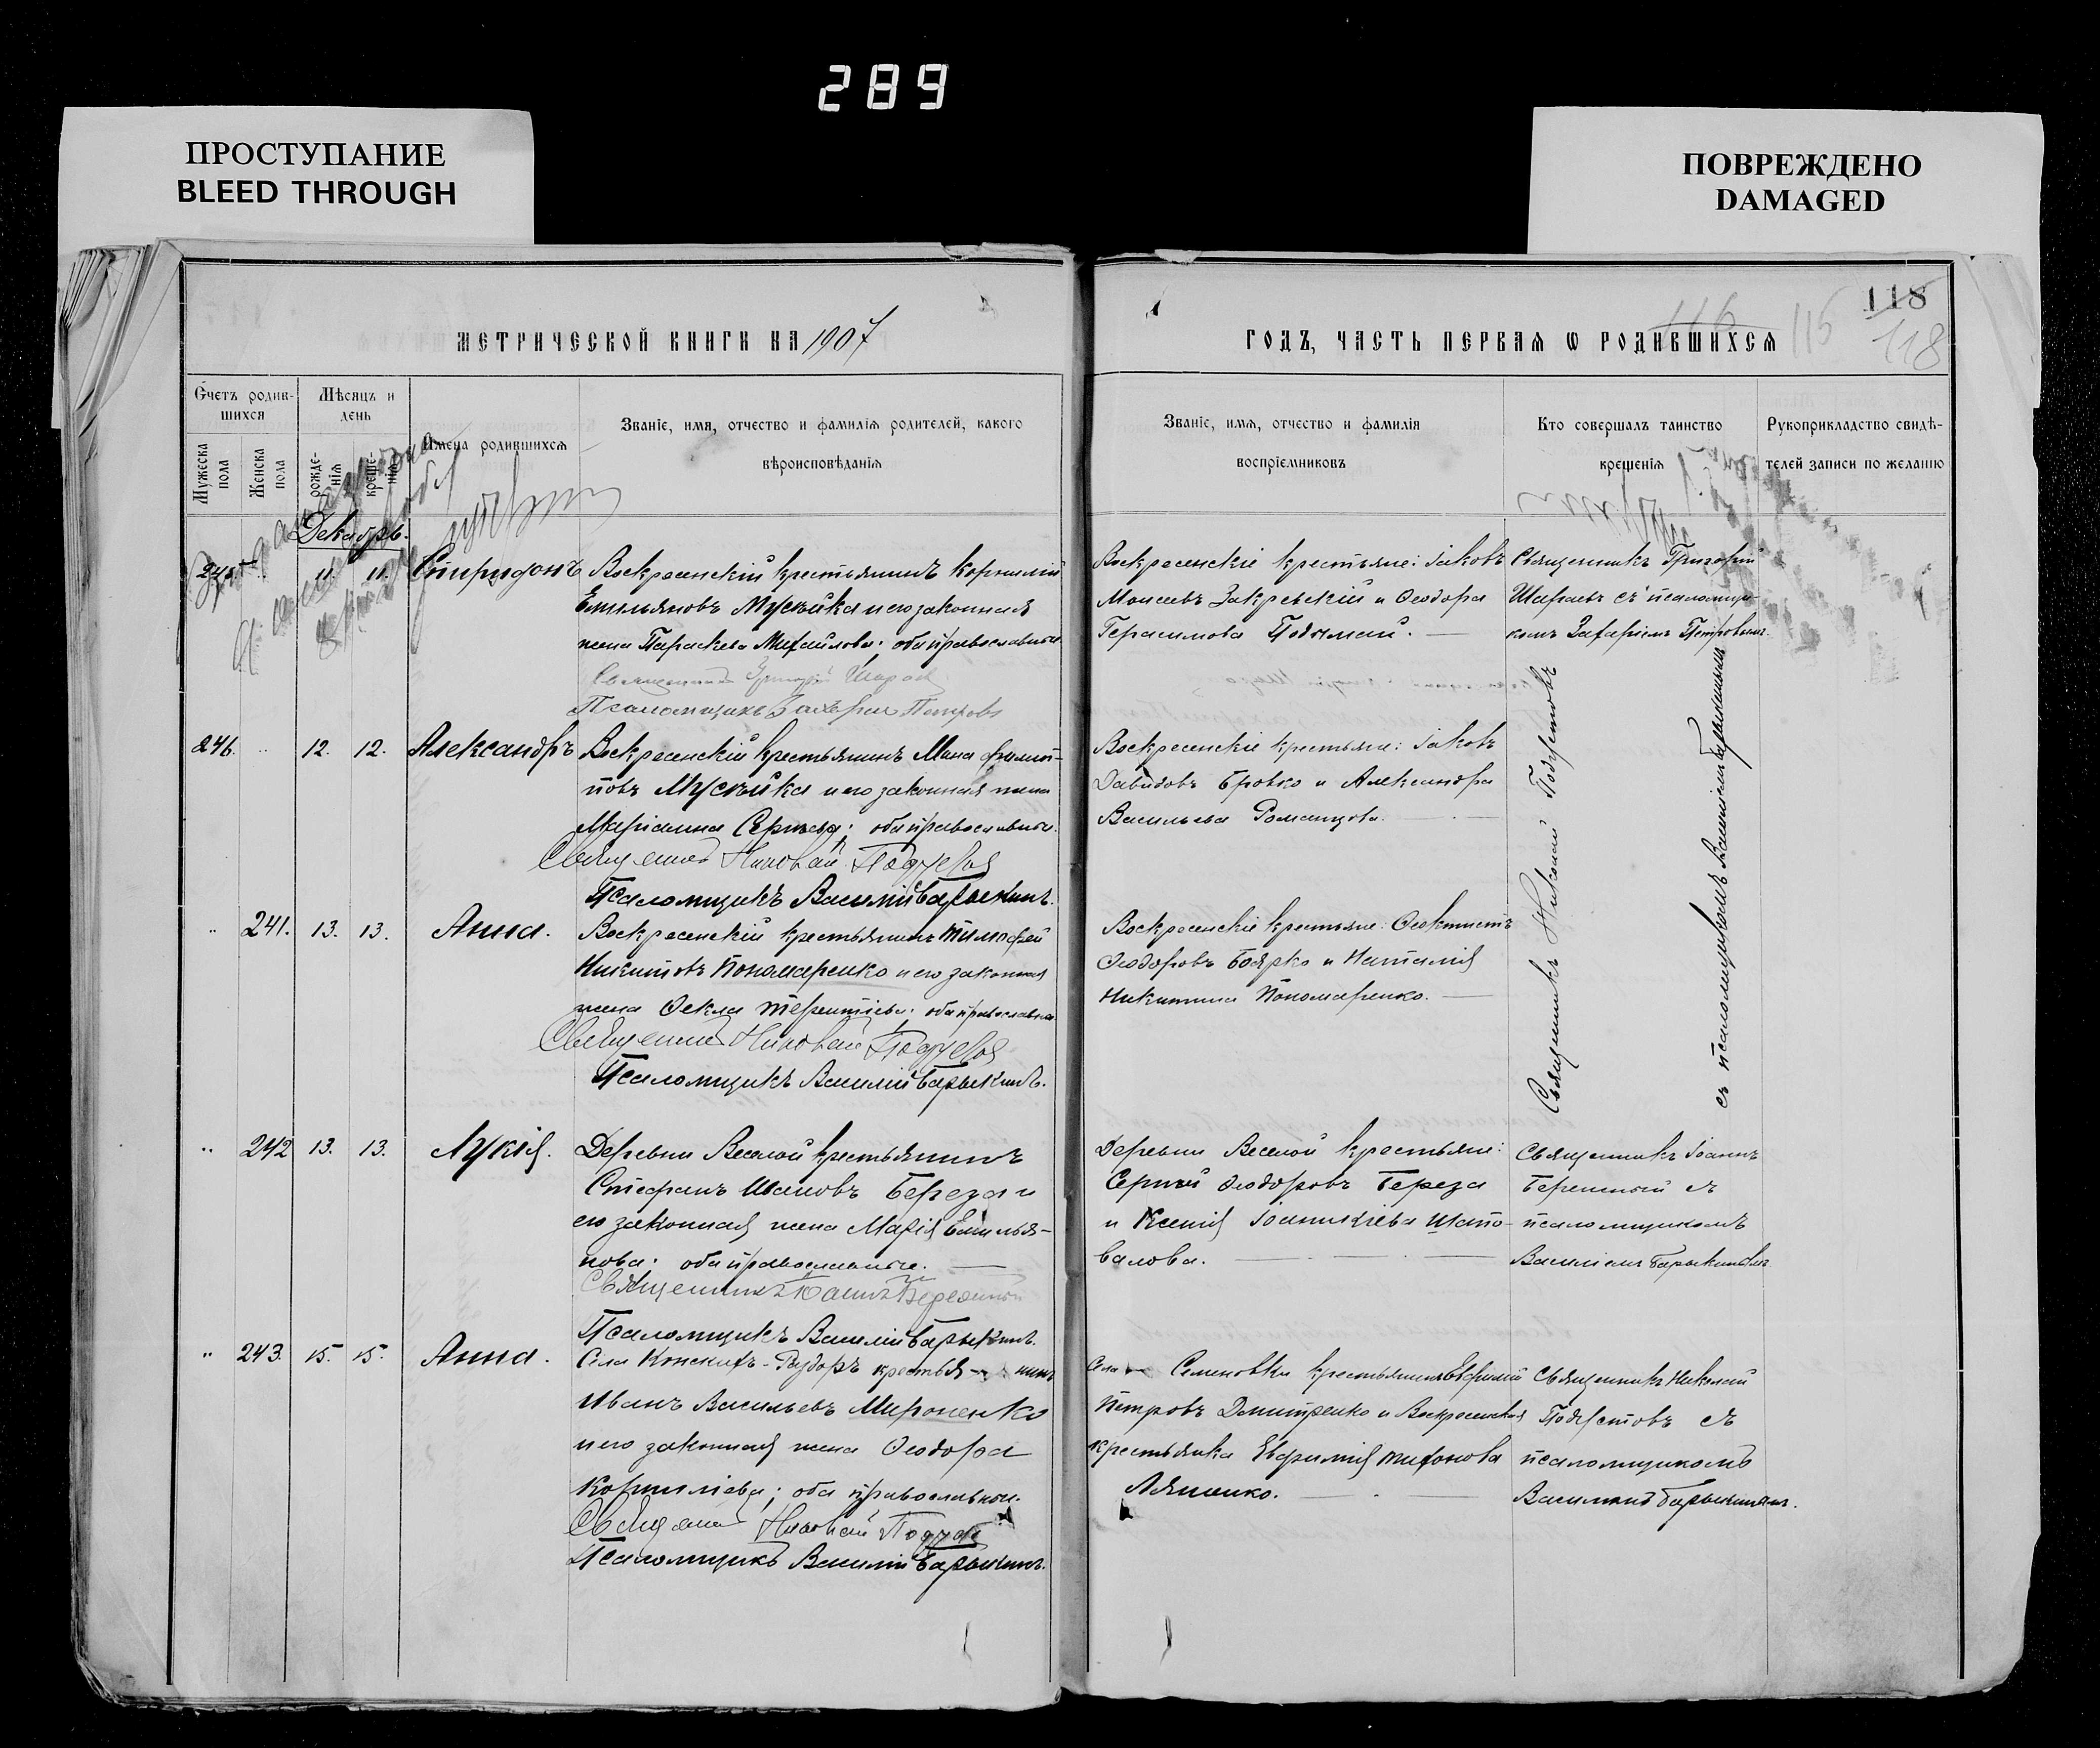 289
ПРОСТУПАНИЕ
BLEED THROUGH
ПОВРЕЖДЕНО
DAMAGED
МЕТРИЧЕСКОЙ КНИГИ НА 1907
Счетъ родив-
шихся
Мѣсяцъ и
день
Мужеска
пола
Женска
пола
рожде-
нія
креще-
нія
Имена родившихся
Званіе, имя, отчество и фамилія родителей, какого
вѣроисповѣданія
Декабрь.
245 11. 11. Спиридонъ
Воскресенскій крестьянинъ Корнилій
Емильяновъ Мусѣйка и его законная
жена Параскева Михайлова; оба православные
Священникъ Григорій
Псаломщикъ Захарія Петровъ
246. 12. 12. Александръ
Воскресенскій крестьянинъ Мина Филип-
повъ Мусѣйка и его законная жена
Маріанна Сергѣева; оба православные.
Священникъ Николай
Псаломщикъ Василій Барыкинъ.
241. 13. 13. Анна.
Воскресенскій крестьянинъ Тимофей
Никитовъ Пономаренко и его законная
жена Ѳекла Терентіева; оба православные
Священникъ Николай
Псаломщикъ Василій Барыкинъ.
242 13. 13. Лукія.
Деревни Веселой крестьянинъ
Стефанъ Ивановъ Береза и
его законная жена Марія Емилья-
нова; оба православные.
Священникъ
Псаломщикъ Василій Барыкинъ.
243. 15. 15. Анна.
Села Конскихъ-Раздоръ крестья- нинъ
Иванъ Васильевъ Мироненко
и его законная жена Ѳеодора
Корнилieва; оба православные.
Священникъ Николай
Псаломщикъ Василій Барыкинъ.
118
116 115 118
ГОДЪ, ЧАСТЬ ПЕРВАЯ Ѡ РОДИВШИХСЯ
Званіе, имя, отчество и фамилія
воспріемниковъ
Кто совершалъ таинство
крещенія
Рукоприкладство свидѣ-
телей записи по желанію
Воскресенскіе крестьяне: Іаковъ
Моисеевъ Закревскій и Ѳеодора
Герасимова
Священникъ Григорій
съ псаломщи-
комъ Захаріемъ Петровымъ.
Воскресенскіе крестьяне: Іаковъ
Давидовъ Бровко и Александра
Васильева Романцова.
Воскресенскіе крестьяне: Ѳеоктистъ
Ѳеодоровъ Боярко и Наталія
Никитина Пономаренко.
Священникъ Николай
съ псаломщикомъ Василіемъ Барыкинымъ
Деревни Веселой крестьяне:
Сергій Ѳеодоровъ Береза
и Ксенія Іоанникіева Шапо-
валова.
Священникъ Іоаннъ
съ
псаломщикомъ
Василіемъ Барыкинымъ
Села Семеновки крестьянинъ Евфимій
Петровъ Дмитренко и Воскресенская
крестьянка Евфимія Тихонова
Ляшенко.
Священникъ Николай
съ
псаломщикомъ
Василіемъ Барыкинымъ.